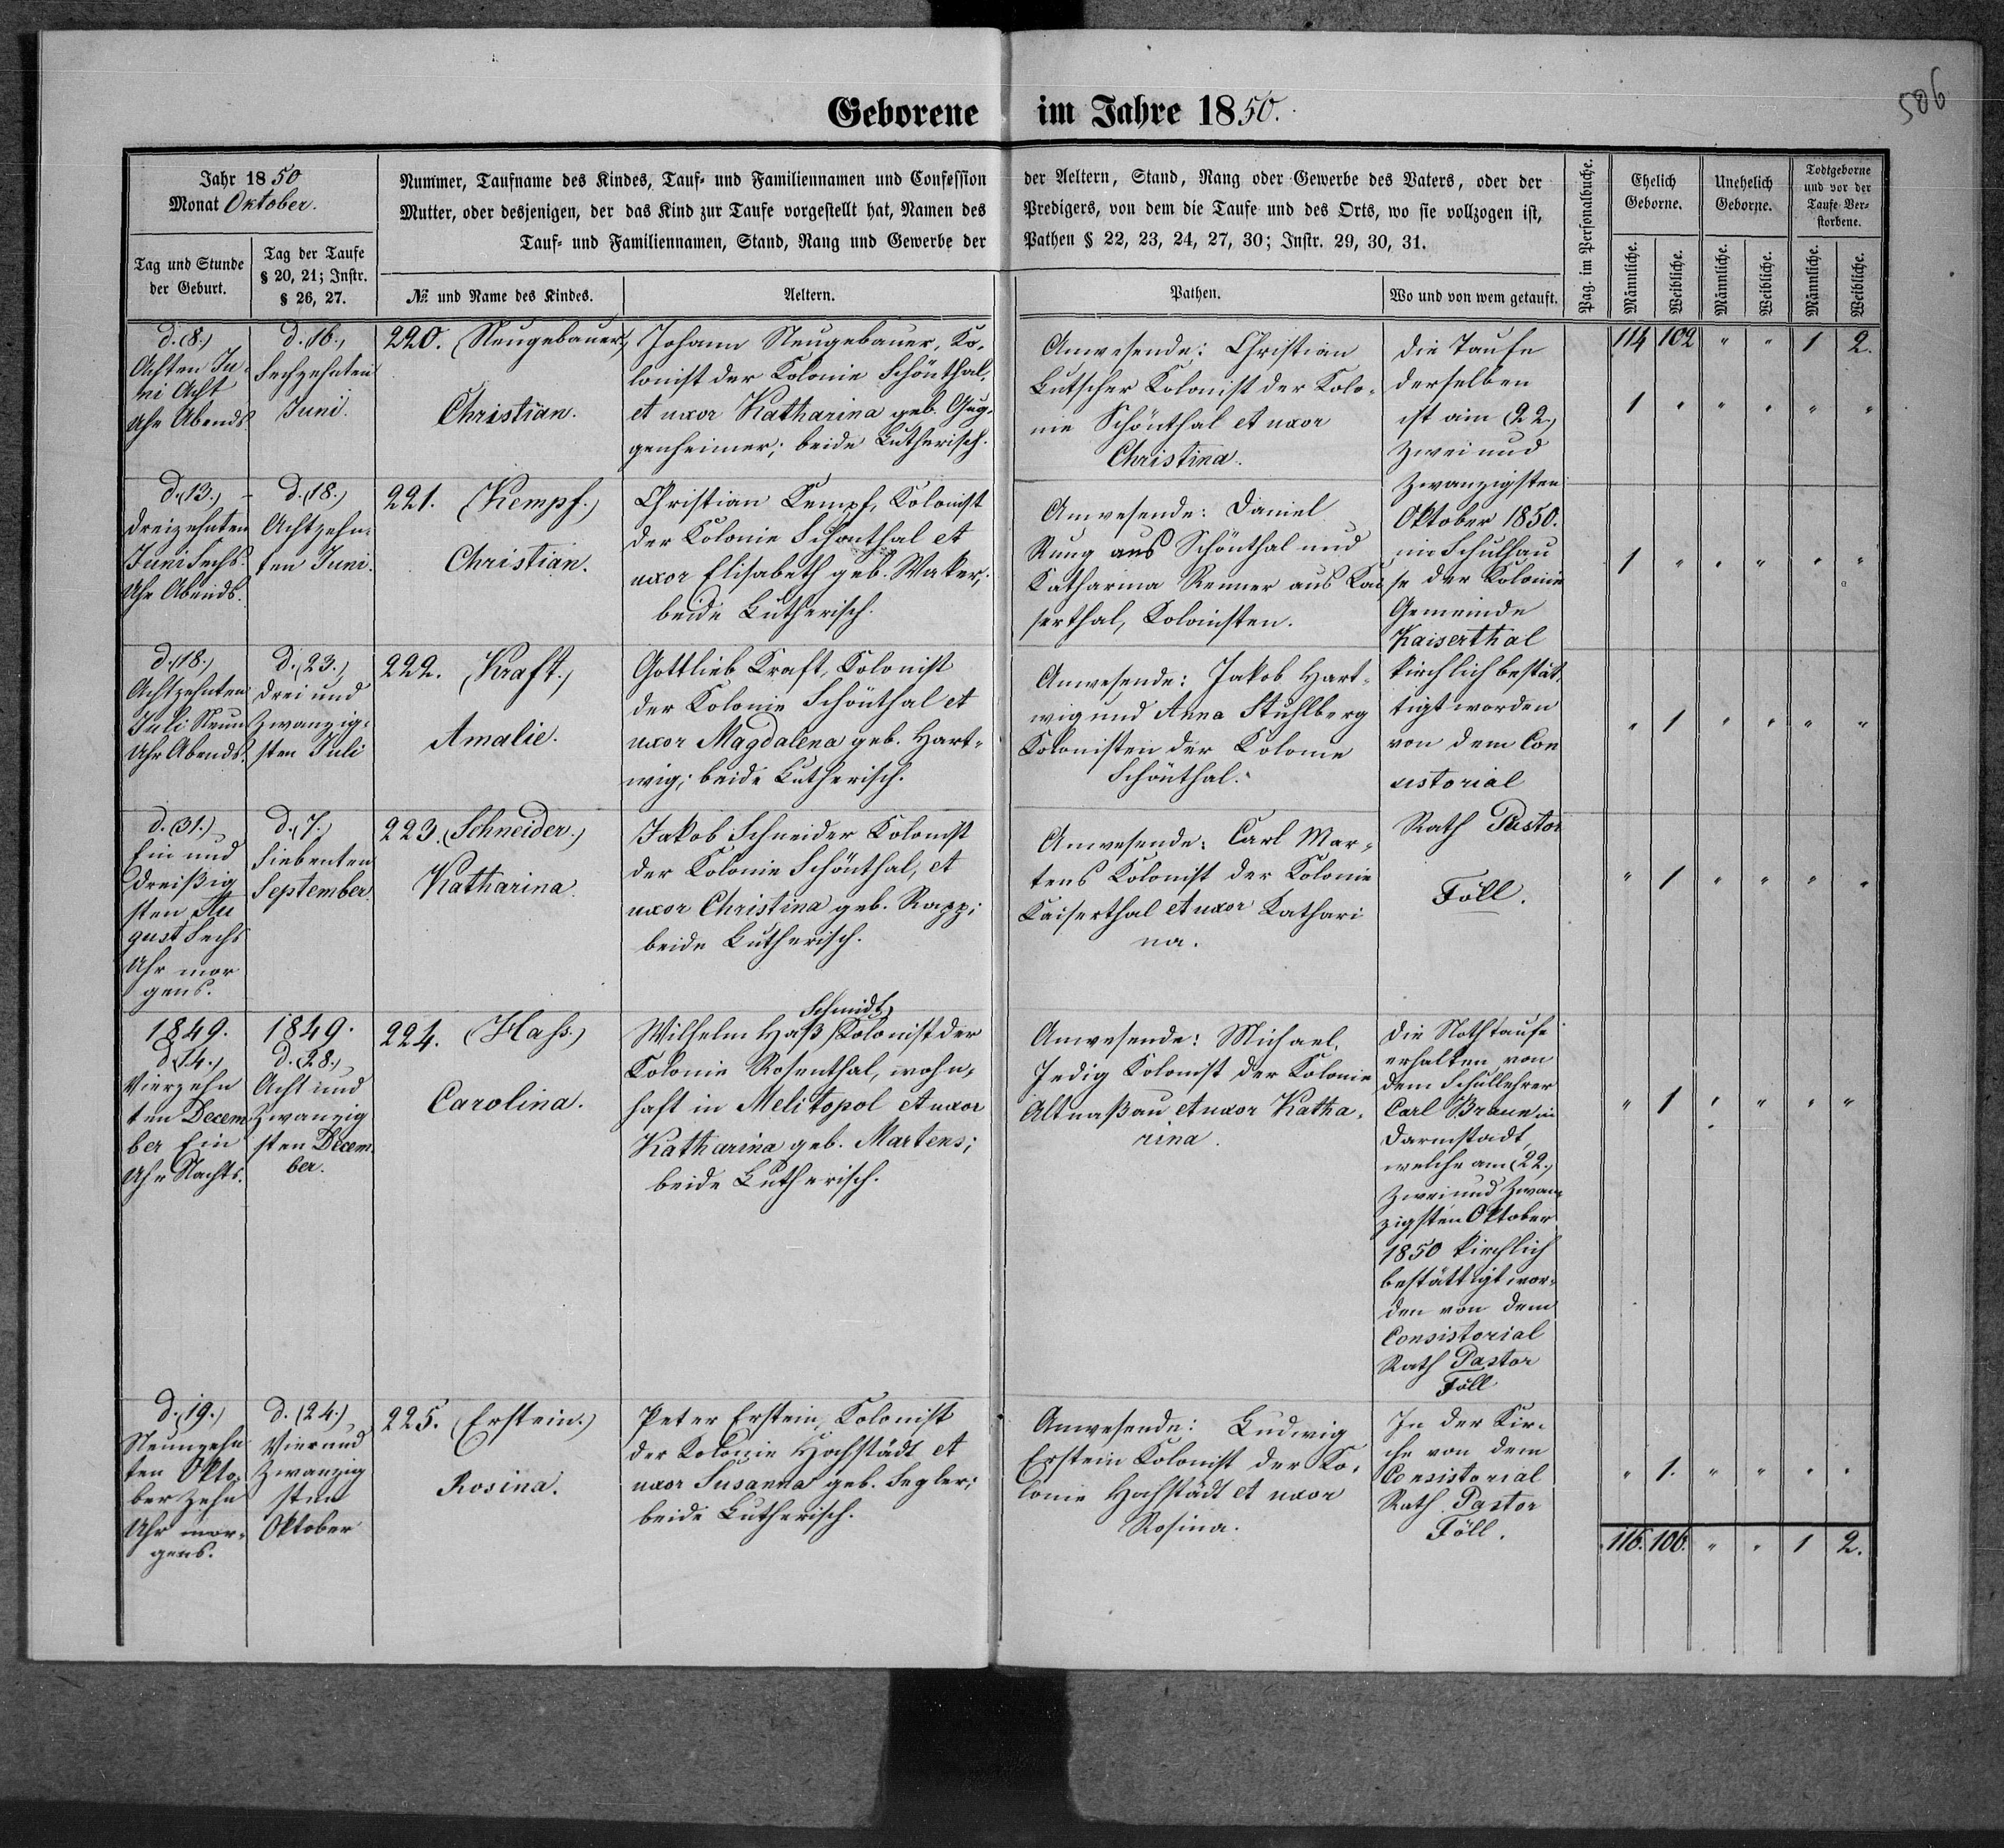 Geborene im Jahre 1850.
586
Jahr 1850
Monat Oktober.
Tag und Stunde
der Geburt.
Tag der Taufe
§ 20, 21; Instr.
§ 26, 27.
Nummer, Taufname des Kindes, Tauf- und Familiennamen und Confession
Mutter, oder desjenigen, der das Kind zur Taufe vorgestellt hat, Namen des
Tauf- und Familiennamen, Stand, Rang und Gewerbe der
№ und Name des Kindes.
Aeltern.
der Aeltern, Stand, Rang oder Gewerbe des Vaters, oder der
Predigers, von dem die Taufe und des Orts, wo sie vollzogen ist,
Pathen § 22, 23, 24, 27, 30; Instr. 29, 30, 31.
Pathen.
Wo und von wem getauft.
Pag. im Personalbuche.
Ehelich
Geborne.
Unehelich
Geborne.
Todtgeborne
und vor der
Taufe Ver-
storbene.
Männliche.
Weibliche.
Männliche.
Weibliche.
Männliche.
Weibliche.
d. (8.)
Achten Ju-
ni Acht
Uhr Abends
d. 16.,
Sechzehnten
Juni.
220. (Neugebauer.)
Christian.
Johann Neugebauer, Ko-
lonist der Kolonie Schönthal,
et uxor Katharina geb. Gug-
genheimer; beide Lutherisch.
Anwesende: Christian
Lutscher Kolonist der Kolo-
nie Schönthal et uxor
Christina.
Die Taufe
derselben
ist am (22.)
Zwei und
Zwanzigsten
Oktober 1850.
im Schulhau
se der Kolonie
Gemeinde
Kaiserthal
kirchlich bestät-
tigt worden
von dem Con
sistorial
Rath Pastor
Föll.
114 102 " " 1 2.
1 " " " " "
d. (13.)
Dreizehnten
Juni Sechs
Uhr Abends.
d. (18.)
Achtzehn-
ten Juni.
221. (Kempf.)
Christian.
Christian Kempf, Kolonist
der Kolonie Schönthal et
uxor Elisabeth geb. Waker;
beide Lutherisch.
Anwesende: Daniel
Rung aus Schönthal und
Katharina Renner aus Kai
serthal, Kolonisten.
1 " " " " "
d. (18.)
Achtzehnten
Juli Neun
Uhr Abends.
d. (23.)
Drei und
Zwanzig-
sten Juli
222. (Kraft.)
Amalie.
Gottlieb Kraft, Kolonist
der Kolonie Schönthal et
uxor Magdalena geb. Hart-
wig; beide Lutherisch.
Anwesende: Jakob Hart-
wig und Anna Stuhlberg
Kolonisten der Kolonie
Schönthal.
" 1 " " " "
d. (31.)
Ein und
Dreißig
sten Au
gust Sechs
Uhr mor
gens.
d. (7.)
Siebenten
September
223. (Schneider.)
Katharina.
Jakob Schneider Kolonist
der Kolonie Schönthal, et
uxor Christina geb. Rapp;
beide Lutherisch.
Anwesende: Carl Mar-
tens Kolonist der Kolonie
Kaiserthal et uxor Kathari
na.
" 1 " " " "
1849.
d. 14.)
Vierzehn
ten Decem
ber Ein
Uhr Nachts.
1849.
d. (28.)
Acht und
Zwanzig
sten Decem
ber.
224. (Hass.)
Carolina.
Schmidt,
Wilhelm Haß, Kolonist der
Kolonie Rosenthal, wohn-
haft in Melitopol et uxor
Katharina geb. Martens;
beide Lutherisch.
Anwesende: Michael
Jedig Kolonist der Kolonie
Altnaßau et uxor Katha-
rina.
Die Nothtaufe
erhalten von
dem Schullehrer
Carl Braun in
Darmstadt,
welche am (22.)
Zwei und Zwan
zigsten Oktober
1850 kirchlich
bestättigt wor-
den von dem
Consistorial
Rath Pastor
Föll
" 1 " " " "
d. (19.)
Neunzehn
ten Okto-
ber Zehn
Uhr mor-
gens.
d. (24.)
Vier und
Zwanzig
sten
Oktober
225. (Erstein.)
Rosina.
Peter Erstein, Kolonist
der Kolonie Hochstädt et
uxor Susanna geb. Segler;
beide Lutherisch.
Anwesende: Ludwig
Erstein Kolonist der Ko-
lonie Hochstädt et uxor
Rosina.
In der Kir-
che von dem
Consistorial
Rath Pastor
Föll.
" 1. " " " "
116. 106. " " 1 2.